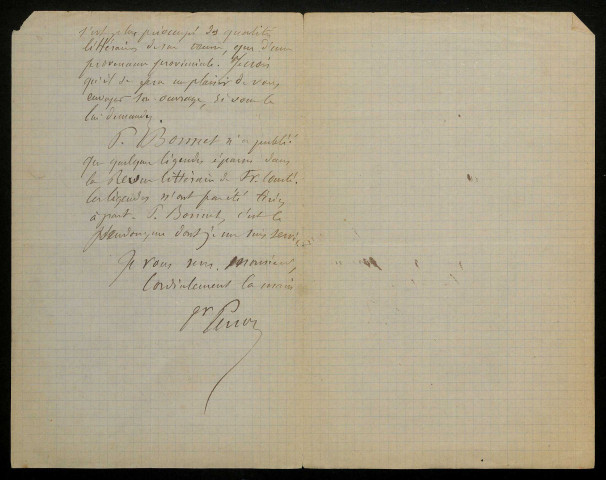 s'est plus préoccupé des qualités
littéraires de son œuvre, que d'une
provenance provinciale. Je crois
qu'il se fera un plaisir de vous
envoyer son ouvrage, si vous le
lui demandez.
P. Bonnet n'a publié
que quelques légendes éparses dans
la Revue littéraire de Fr. Comté.
Ces légendes n'ont pas été tirées
à part. P. Bonnet, c'est le
pseudonyme dont je me suis servi.
Je vous serre, Monsieur,
cordialement la main